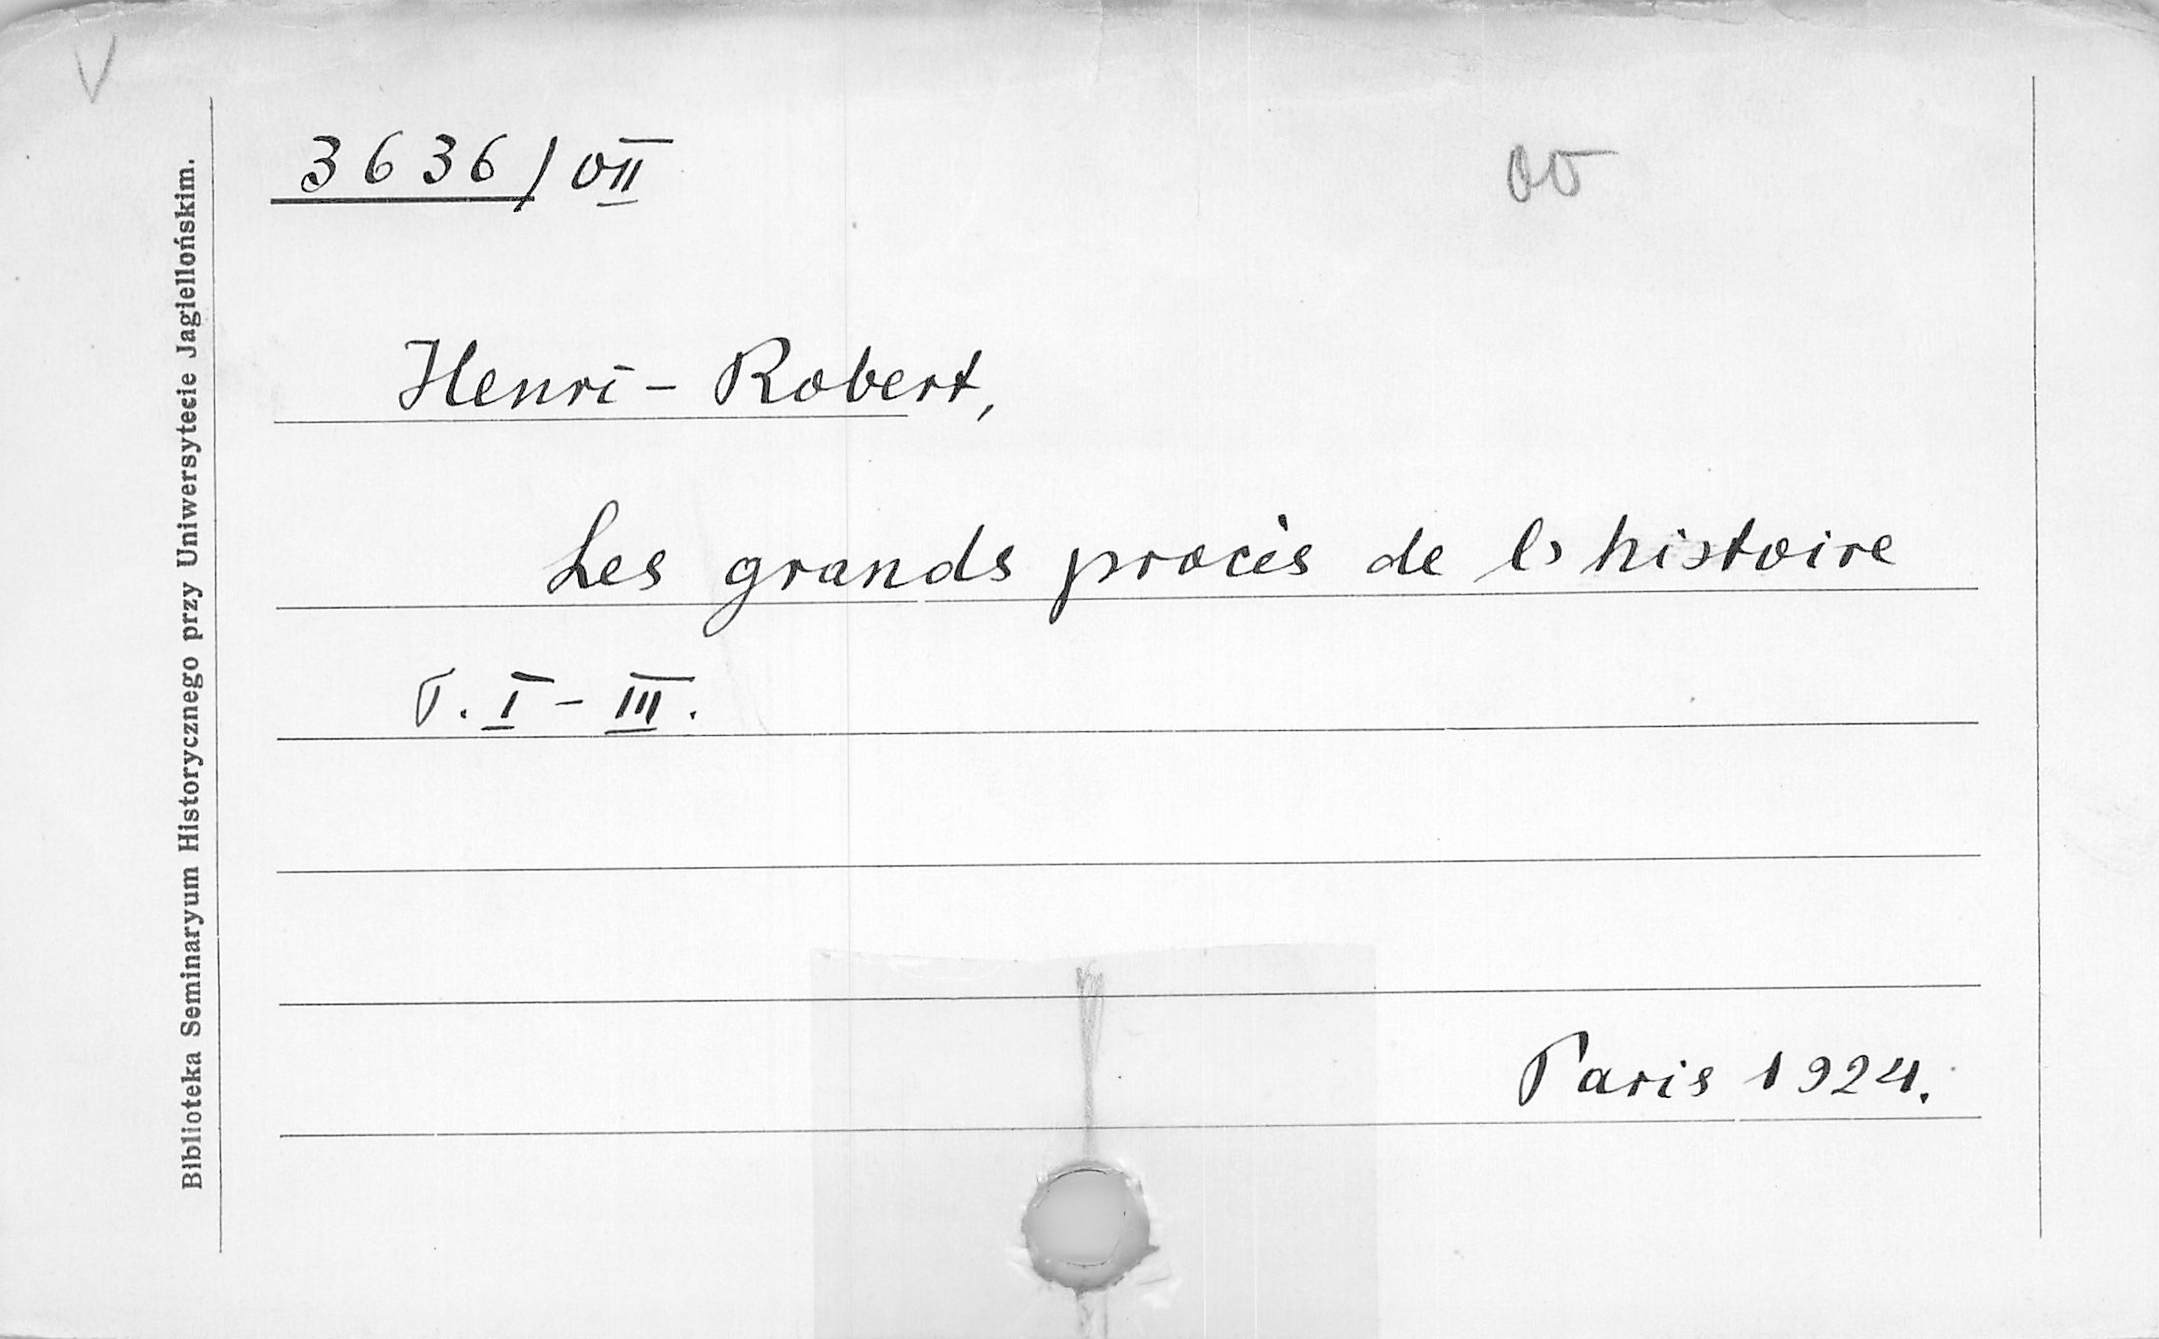 V
3636/VII
Henri-Robert,
Les grands procès de l'histoire
T. I-III.
Paris 1924.
Biblioteka Seminaryum Historycznego przy Uniwersytecie Jagiellońskim.